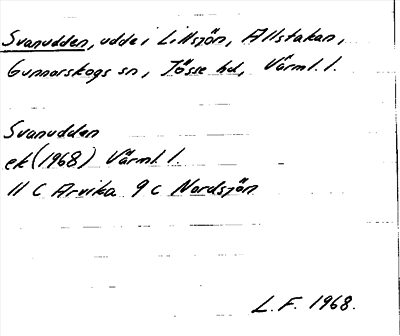 Svanudden, udde i Lillsjön, Allstakan,
Gunnarskogs sn, Jösse hd, Värml. l.
Svanudden
ek (1968) Värml. l.
11 C Arvika 9 c Nordsjön
L. F. 1968.